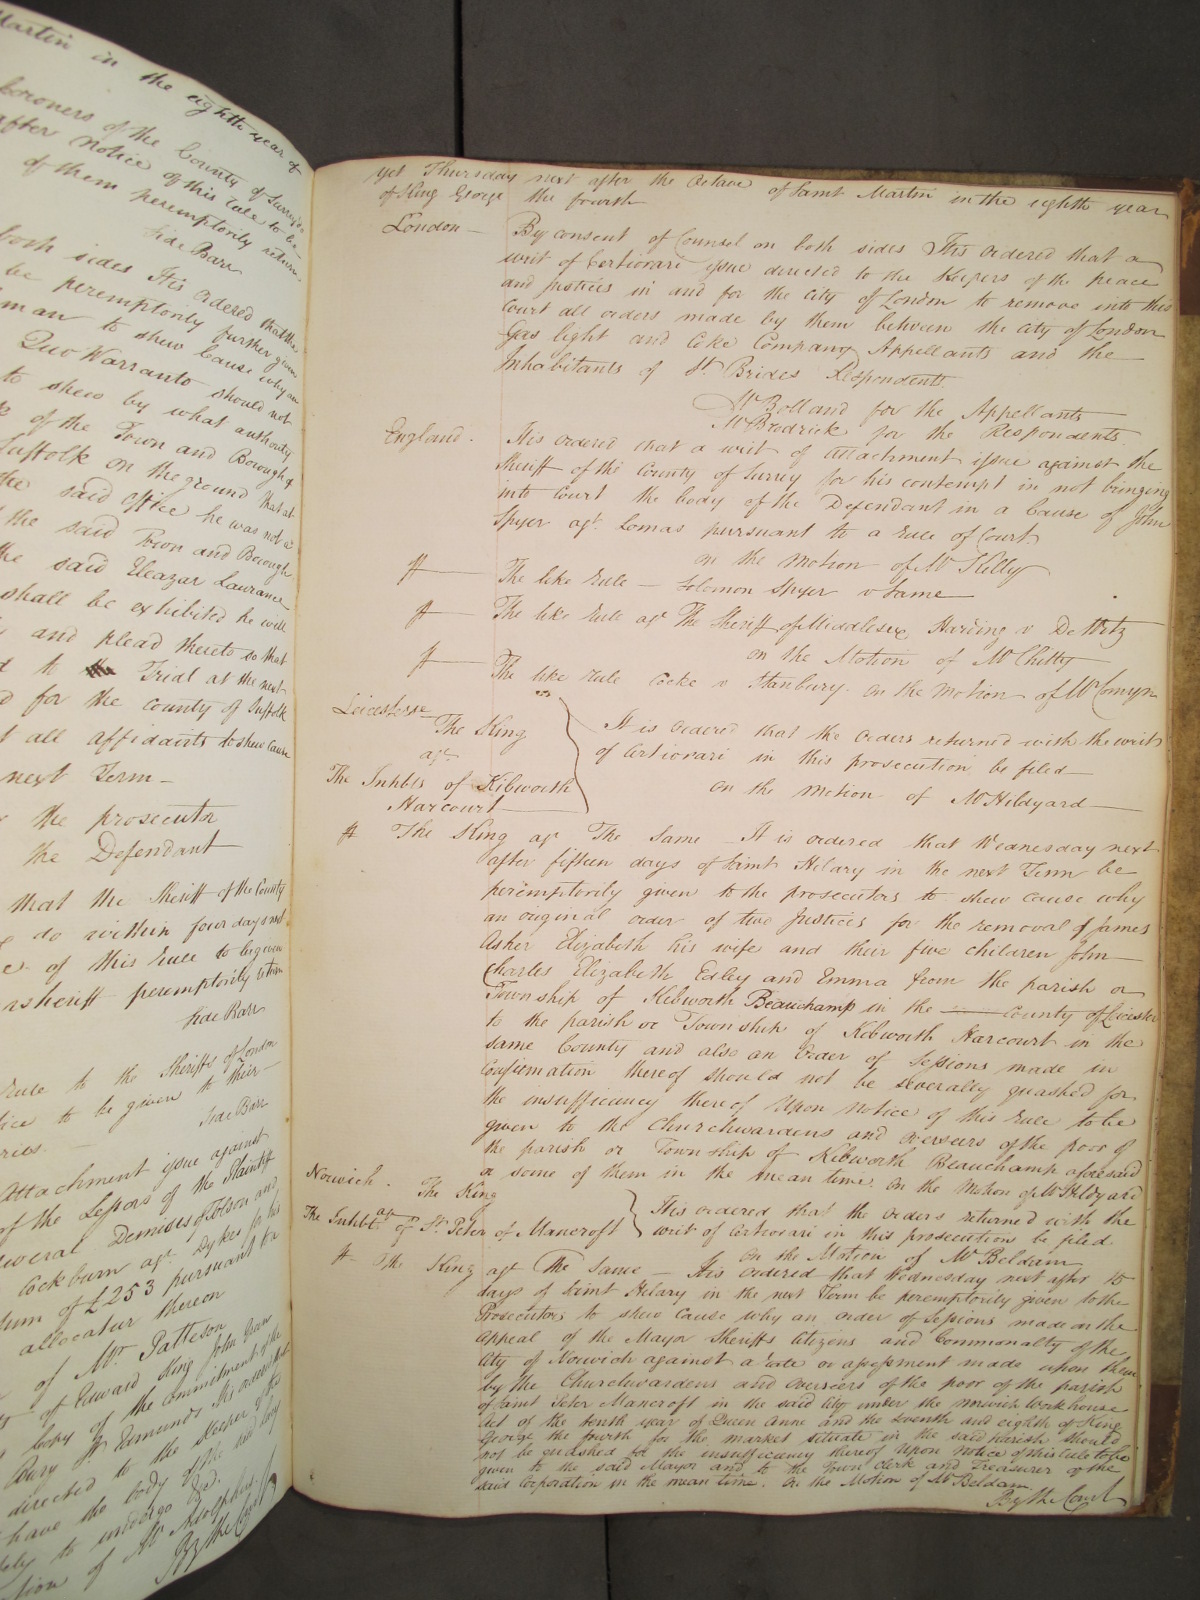 Martin in the eighth year of
Coroners of the County of Surry do
after Notice of this rule to be
of them peremptorily return
Side Barr
both sides It is ordered that the
be peremptorily further given
man to shew Cause why an
Quo Warranto should not
to shew by what authority
of the Town and Borough of
Suffolk on the ground that at
the said office he was not a
the said Town and Borough
the said Eleazar Laurance
shall be exhibited he will
and plead thereto so that
to the Trial at the next
for the County of Suffolk
all affidavits to shew Cause
next Term —
the prosecutor
the Defendant
that the Sheriff of the County
do within four days next
of this rule to be given
a sheriff peremptorily return
Side Barr
rule to the Sheriffs of London
notice to be given to their —
Side Barr
Attachment issue against
of the Lessors of the Plaintiff
several Demises of Tolson and
Cockburn agt. Dykes for his
sum of £253 pursuant to
allocatur thereon
of Mr. Patteson
of Edward King John Green
body of the commitment of the
Bury St. Edmunds It is ordered that
directed to the Keeper of the
have the body of the said
to undergo &c.
of Mr Adolphus
By the Court
yet Thursday next after the Octave of Saint Martin in the eighth year
of King George the fourth
London — By consent of Counsel on both sides It is ordered that a
writ of Certiorari issue directed to the Keepers of the peace
and Justices in and for the City of London to remove into this
Court all orders made by them between the City of London
Gas light and Coke Company Appellants and the
Inhabitants of St Brides Respondents.
Mr Bolland for the Appellants
Mr Brodrick for the Respondents.
England. It is ordered that a writ of attachment issue against the
Sheriff of the County of Surrey for his contempt in not bringing
into Court the body of the Defendant in a Cause of John
Spyer agt. Lomas pursuant to a rule of Court.
on the motion of Mr Kelly
ss — The like rule — Solomon Spyer v Same —
ss — The like rule agt The Sheriff of Middlesex Harding v De Witz
on the Motion of Mr Chitty
ss — The like rule Cocke v Stanbury. on the motion of Mr Comyn
Leicesterre
The King
agt
The Inhbts of Kibworth
Harcourt
It is ordered that the orders returned with the writ
of Certiorari in this prosecution be filed —
on the motion of Mr Hildyard —
ss The King agt The Same — It is ordered that Wednesday next
after fifteen days of Saint Hilary in the next Term be
peremptorily given to the prosecutors to shew cause why
an original order of two Justices for the removal of James
Asher Elizabeth his wife and their five children John —
Charles Elizabeth Edley and Emma from the parish or
Township of Kibworth Beauchamp in the —— County of Leicester
to the parish or Township of Kibworth Harcourt in the
same County and also an Order of Sessions made in
Confirmation thereof should not be severally quashed for
the insufficiency thereof Upon notice of this rule to be
given to the Churchwardens and overseers of the poor of
the parish or Township of Kibworth Beauchamp aforesaid
or some of them in the mean time. On the Motion of Mr Hildyard
Norwich. The King
agt
The Inhbts of St. Peter of Mancroft
It is ordered that the orders returned with the
writ of certiorari in this prosecution be filed.
On the Motion of Mr Beldam
ss The King agt The Same — It is ordered that Wednesday next after 15
days of Saint Hilary in the next Term be peremptorily given to the
Prosecutors to shew cause why an order of Sessions made on the
Appeal of the Mayor Sheriffs Citizens and Commonalty of the
City of Norwich against a rate or assessment made upon them
by the Churchwardens and overseers of the poor of the parish
of Saint Peter Mancroft in the said City under the Norwich Workhouse
Act of the tenth year of Queen Anne and the seventh and eighth of King
George the fourth for the market situate in the said parish should
not be quashed for the insufficiency thereof Upon notice of this rule to be
given to the said Mayor and to the Town Clerk and Treasurer of the
said Corporation in the mean time. On the Motion of Mr Beldam.
By the Court